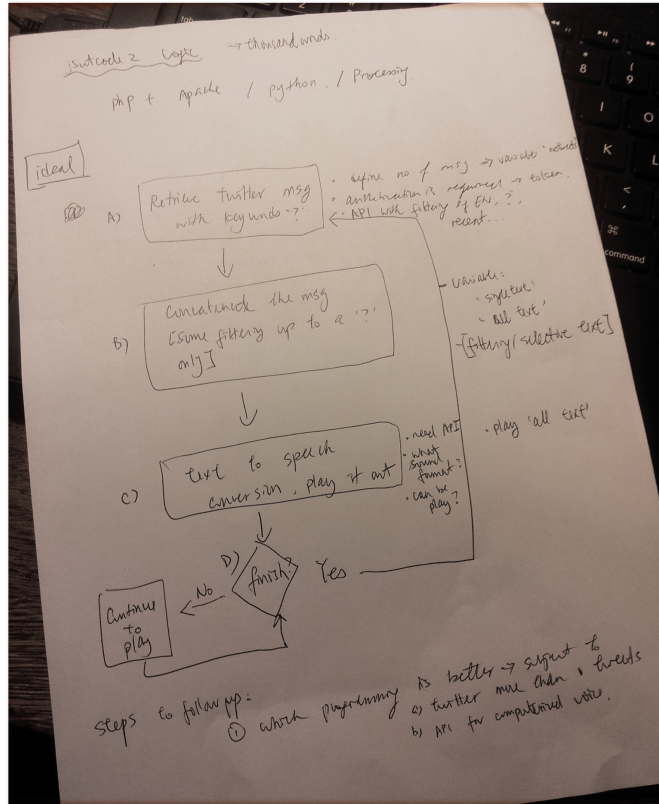 logic → thousand words.
php + Apache / python / Processing.
ideal
A)
Retrieve twitter msg
with keywords '?'
• define no of msg → variable
• authentication is required → token.
• API with filtering of EN, ?,
recent...
B)
Concatenate the msg
[some filtering up to a '?'
only]
variable:
'single text'
'all text'
-[filtering/selective text]
C)
text to speech
conversion, play it out
• need API
• what
sound
format?
• can be
play?
• play 'all text'
D)
finish?
Yes
No
Continue
to
play
steps to follow up:
① which programming is better → subject to
a) twitter more than 1 tweets
b) API for computerized voice.
8
9
I
O
K
L
<
,
⌘
command